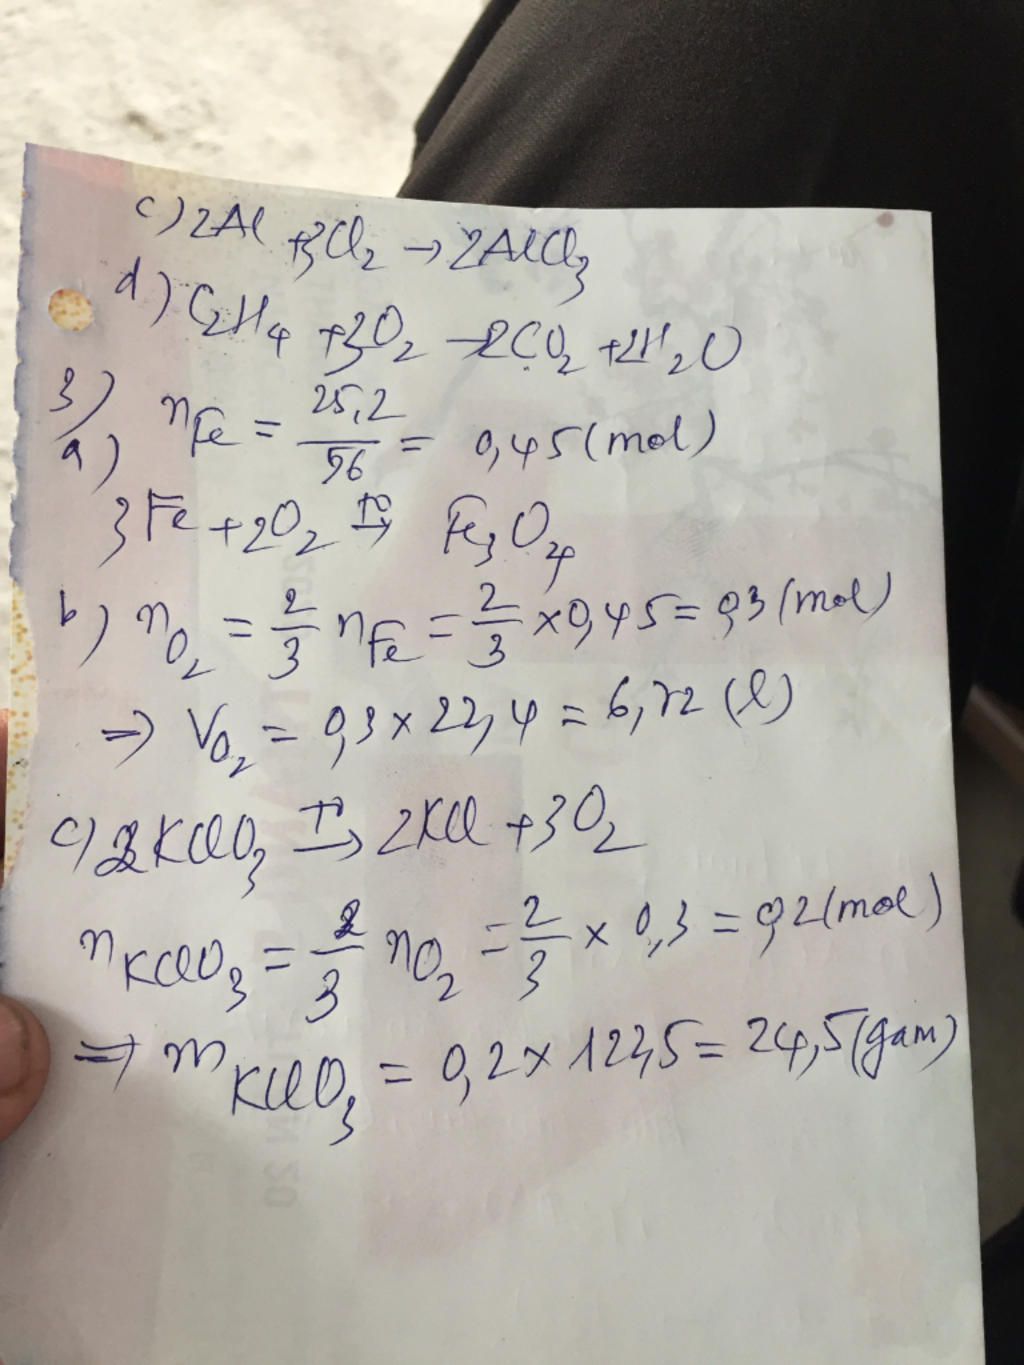 c) 2Al + 3Cl₂ → 2AlCl₃
d) C₂H₄ + 3O₂ → 2CO₂ + 2H₂O
3/
a) nFe = 25,2/56 = 0,45 (mol)
3Fe + 2O₂ t° → Fe₃O₄
b) nO₂ = 2/3 nFe = 2/3 × 0,45 = 0,3 (mol)
⇒ VO₂ = 0,3 × 22,4 = 6,72 (l)
c) 2KClO₃ t° → 2KCl + 3O₂
nKClO₃ = 2/3 nO₂ = 2/3 × 0,3 = 0,2 (mol)
⇒ mKClO₃ = 0,2 × 122,5 = 24,5 (gam)